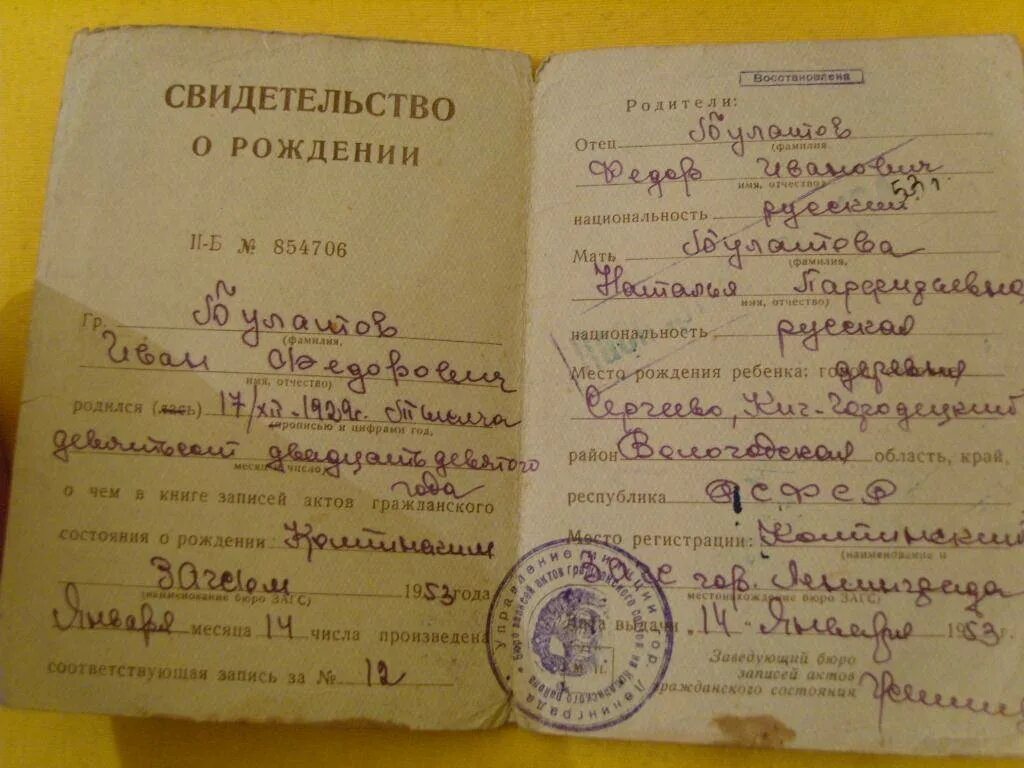 СВИДЕТЕЛЬСТВО
О РОЖДЕНИИ
II-Б № 854706
Гр. Булатов
(фамилия,
Иван Федорович
имя, отчество)
родился (лась) 17/XII-1929г. Тысяча
прописью и цифрами год,
девятьсот двадцать девятого
месяц число)
года
о чем в книге записей актов гражданского
состояния о рождении Колпинским
ЗАГСом 1953 года
(наименование бюро ЗАГС)
Января месяца 14 числа произведена
соответствующая запись за № 12
Восстановлена
Родители:
Отец Булатов
(фамилия
Федор Иванович
имя, отчество)
53 г.
национальность русский
Мать Булатова
(фамилия,
Наталья
имя, отчество)
национальность русская
Место рождения ребенка: деревня
Сергеево, Кич-Городецкий
район Вологодская область, край,
республика РСФСР
Место регистрации: Колпинский
(наименование и
ЗАГС гор. Ленинграда
местонахождение бюро ЗАГС)
Дата выдачи „14" Января 1953 г.
Заведующий бюро
записей актов
гражданского состояния
Управление милиции гор. Ленинграда
Бюро записей актов гражданского состояния
района